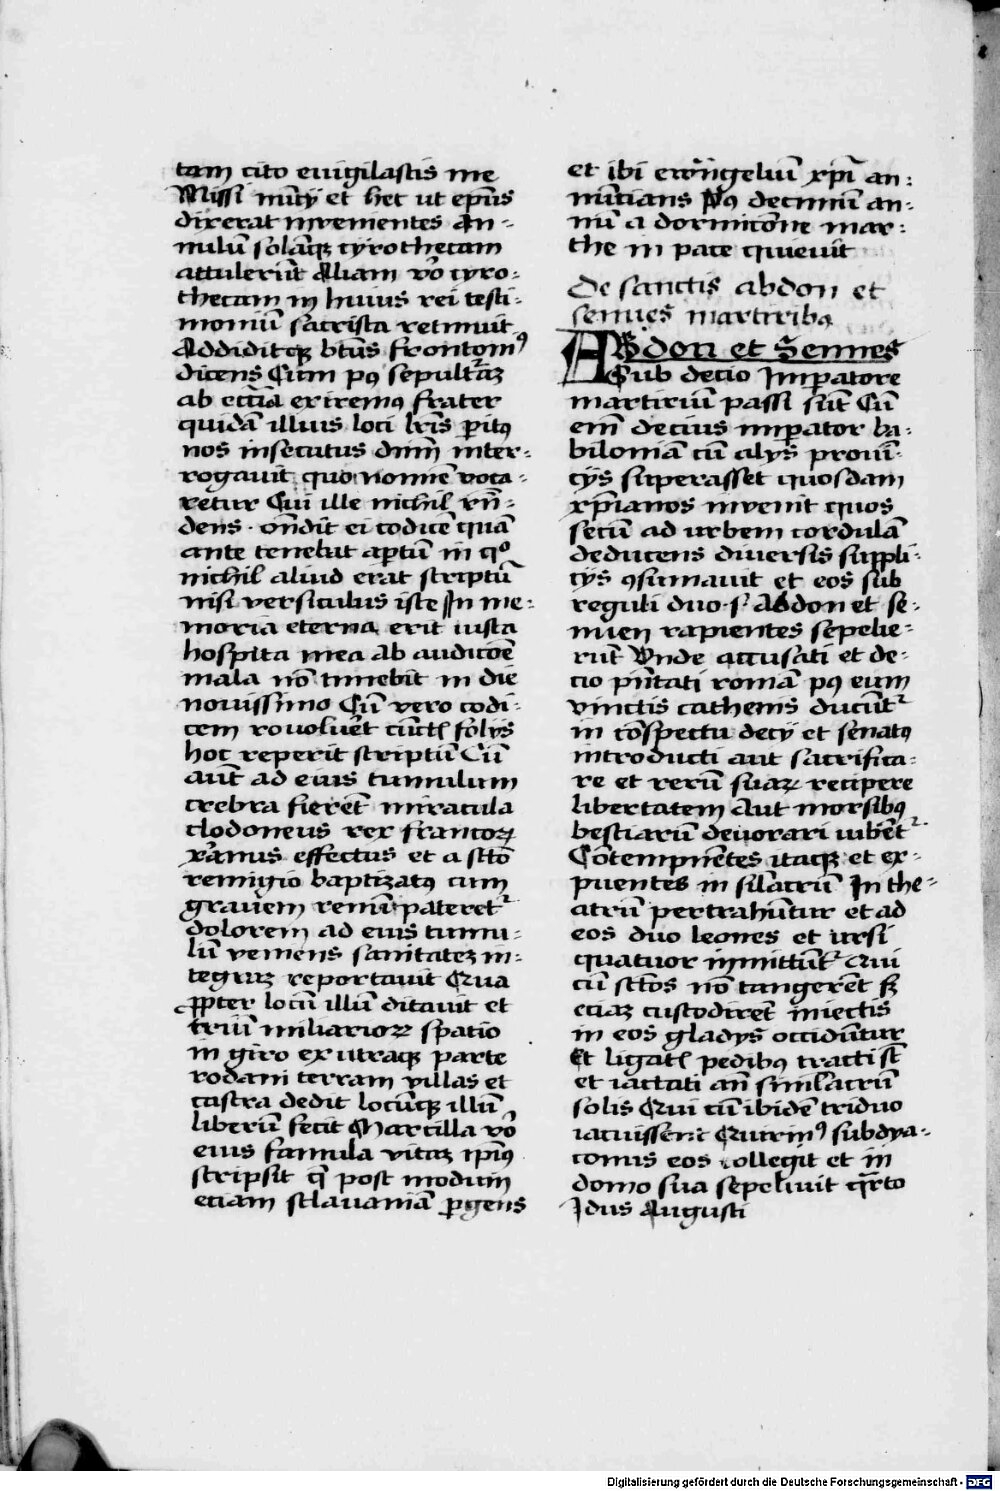 tam cito evigilastis me
Missi nūtÿ et hec ut ep̄us
dixerat invenientes an-
nulū solāqꝫ cyrothecam
attulerūt Aliam v̄o cyro-
thecam in huius rei testi-
moniū sacrista retinuit
Addiditqꝫ bt̄us fronton᷒
dicens Cum pꝰ sepultᷓaꝫ
ab eccl̄ia exiremꝰ frater
quidā illius loci lr̄is p̱itꝰ
nos insecutus dn̄m inter-
rogavit quo nomīe voca-
retur Cui ille nichil rn̄-
dens · ōndit ei codicē quē
ante tenebat ap̱tū in qͦ
nichil aliud erat scriptū
nisi versiculus iste In me-
moria eterna erit iusta
hospita mea Ab auditōe
mala nō timebit in die
novissimo Cū vero codi-
cem revolver̄et cūctꝭ folÿs
hoc reperit scriptū Cū
aut̄ ad eius tumulum
crebra fierēt miracula
clodoneus rex francoꝝ
xr̄ianus effectus et a sc̄tō
remigio baptizatꝰ cum
gravem renū pateretᷣ
dolorem ad eius tumu-
lū veniens sanitateꝫ in-
tegraꝫ reportavit Qua
ꝓpter locū illū ditavit et
triū miliarioꝝ spatio
in giro ex utraqꝫ parte
rodani terram villas et
castra dedit locūqꝫ illū
liberū fecit Marcilla v̄o
eius famula vitaꝫ ip̄iꝰ
scripsit q̄ post modum
etiam sclavaniā p̱gens
et ibi ewāngeliū xp̄i an-
nūtians pꝰ decimū an-
nū a dormitōne mar-
the in pace quievit
De sanctis abdon et
sennes martiribꝫ
ABdon et Sennes
Sub decio Imp̱atore
martiriū passi sūt Cū
em̄ decius imp̱ator ba-
biloniā cū alÿs provī-
cÿs superasset quosdam
xp̄ianos invenit quos
secū ad urbem cordulā
deducens diversis suppli-
cÿs ꝯsumavit et eos sub
reguli duo · s · Abdon et se-
nnen rapientes sepelie-
rūt Unde accusati et de-
cio p̄ntati romā pꝰ eum
vinctis cathenis ducūtᷣ
in cōspectu decÿ et senatꝰ
introducti aut sacrifica-
re et rerū suaꝝ recipere
libertatem Aut morsibꝰ
bestiarū devorari iubētᷣ
Cōtempnētes itaqꝫ et ex-
puentes in sil̄acrū In the-
atrū pertrahūtur et ad
eos duo leones et ursi
quatuor īmittūtᷣ Qui
cū sc̄tōs nō tangerēt sꝫ
eciaꝫ custodirēt iniectis
in eos gladÿs occidūtur
Et ligatꝭ pedibꝰ tracti st̄
et iactati an̄ simlacrū
solis Qui cū ibidē triduo
iacuissent Quirinꝰ subdya-
conus eos collegit et in
domo sua sepelivit qᷓrto
Idus Augusti
Digitalisierung gefördert durch die Deutsche Forschungsgemeinschaft - DFG